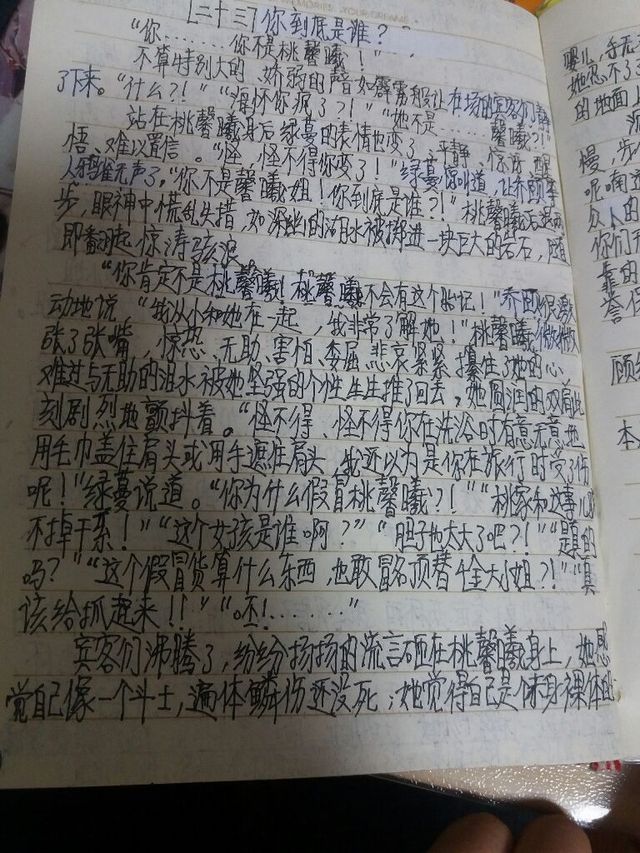 MEMORIES YOUR DREAMS
[二十三]你到底是谁？
“你………你不是桃馨曦！”
不算特别大的、娇弱的声如霹雳般让在场的宾客们静
了下来。“什么？！”“海怀你疯了？！”“她不是……馨曦？！”
站在桃馨曦身后绿蔓的表情也变了，平静、惊讶、醒
悟、难以置信。“怪，怪不得你变了！”绿蔓惊叫道，让
人鸦雀无声了。“你不是馨曦姐！你到底是谁？！”桃馨曦
步，眼神中慌乱失措，如深幽的湖水被掷进一块巨大的岩石，随
即翻起惊涛骇浪。
“你肯定不是桃馨曦！桃馨曦不会有这个胎记！”乔
动地说，“我从小和她在一起，我非常了解她！”桃馨曦微微
张了张嘴，惊慌、无助、害怕、委屈、悲哀紧紧攥住了她的心
难过与无助的泪水被她坚强的个性生生推了回去，她圆润的双肩此
刻剧烈地颤抖着。“怪不得、怪不得你在洗浴时有意无意地
用毛巾盖住肩头或用手遮住肩头，我还以为是你在旅行时受了伤
呢！”绿蔓说道。“你为什么假冒桃馨曦？！”“桃家和这事儿脱
不掉干系！”“这个女孩是谁啊？”“胆子也太大了吧？！”“是真的
吗？”“这个假冒货算什么东西，也敢冒名顶替千金大小姐？！”“真
该给抓起来！！”“呸！……”
宾客们沸腾了，纷纷扬扬的流言砸在桃馨曦身上，她感
觉自己像一个斗士，遍体鳞伤还没死；她觉得自己是个赤身裸体的
她忍不了
的地面
慢，步
众人的
你们
靠的
誉
顾
本